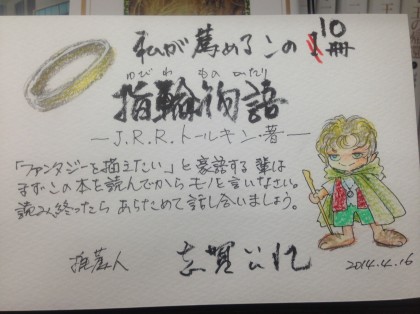 私が薦めるこの10冊
ゆびわ もの がたり
指輪物語
―J.R.R.トールキン著―
「ファンタジーを描きたい」と豪語する輩は
まずこの本を読んでからモノを言いなさい。
読み終ったら あらためて話し合いましょう。
推薦人 志賀公
2014.4.16